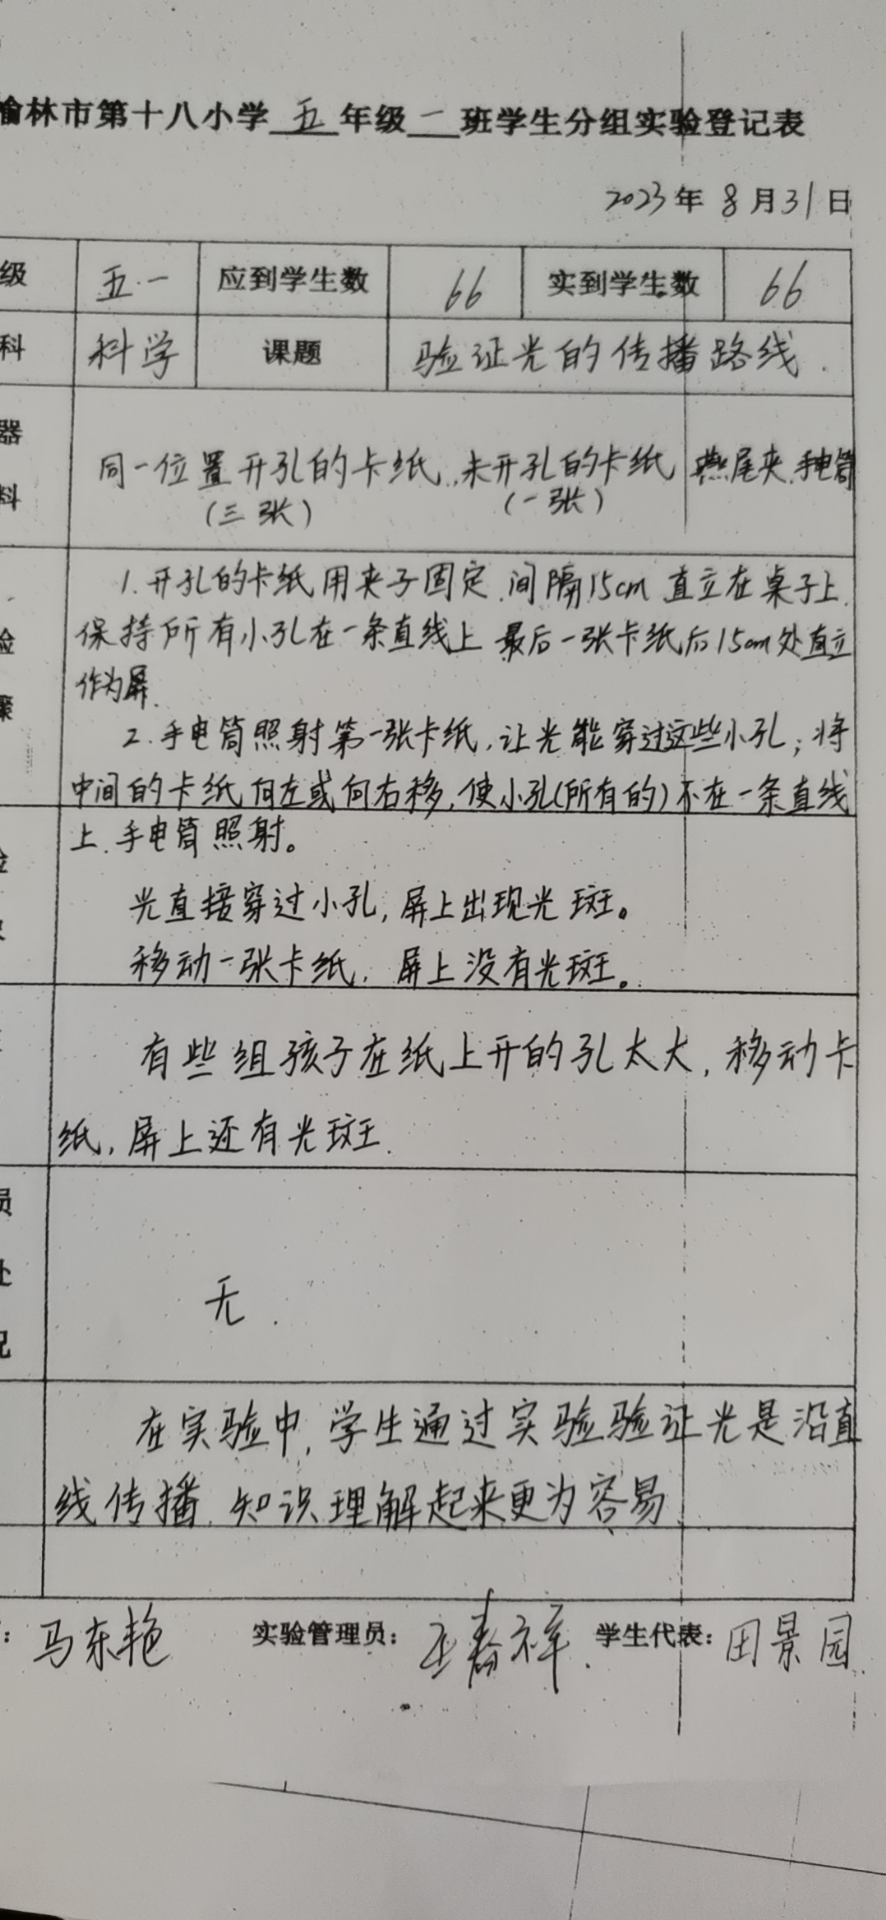 榆林市第十八小学五年级一班学生分组实验登记表
2023年8月31日
级 五.一 应到学生数 66 实到学生数 66
科 科学 课题 验证光的传播路线.
器
料
同一位置开孔的卡纸,未开孔的卡纸 燕尾夹.手电筒
(三张) (一张)
验
骤
1.开孔的卡纸用夹子固定.间隔15cm直立在桌子上.
保持所有小孔在一条直线上 最后一张卡纸后15cm处直立
作为屏.
2.手电筒照射第一张卡纸,让光能穿过这些小孔;将
中间的卡纸向左或向右移,使小孔(所有的)不在一条直线
上.手电筒照射。
光直接穿过小孔,屏上出现光斑。
移动一张卡纸,屏上没有光斑。
有些组孩子在纸上开的孔太大,移动卡
纸,屏上还有光斑.
员
处
况
无.
在实验中,学生通过实验验证光是沿直
线传播.知识理解起来更为容易
: 马东艳 实验管理员: 王春祥. 学生代表: 田景园